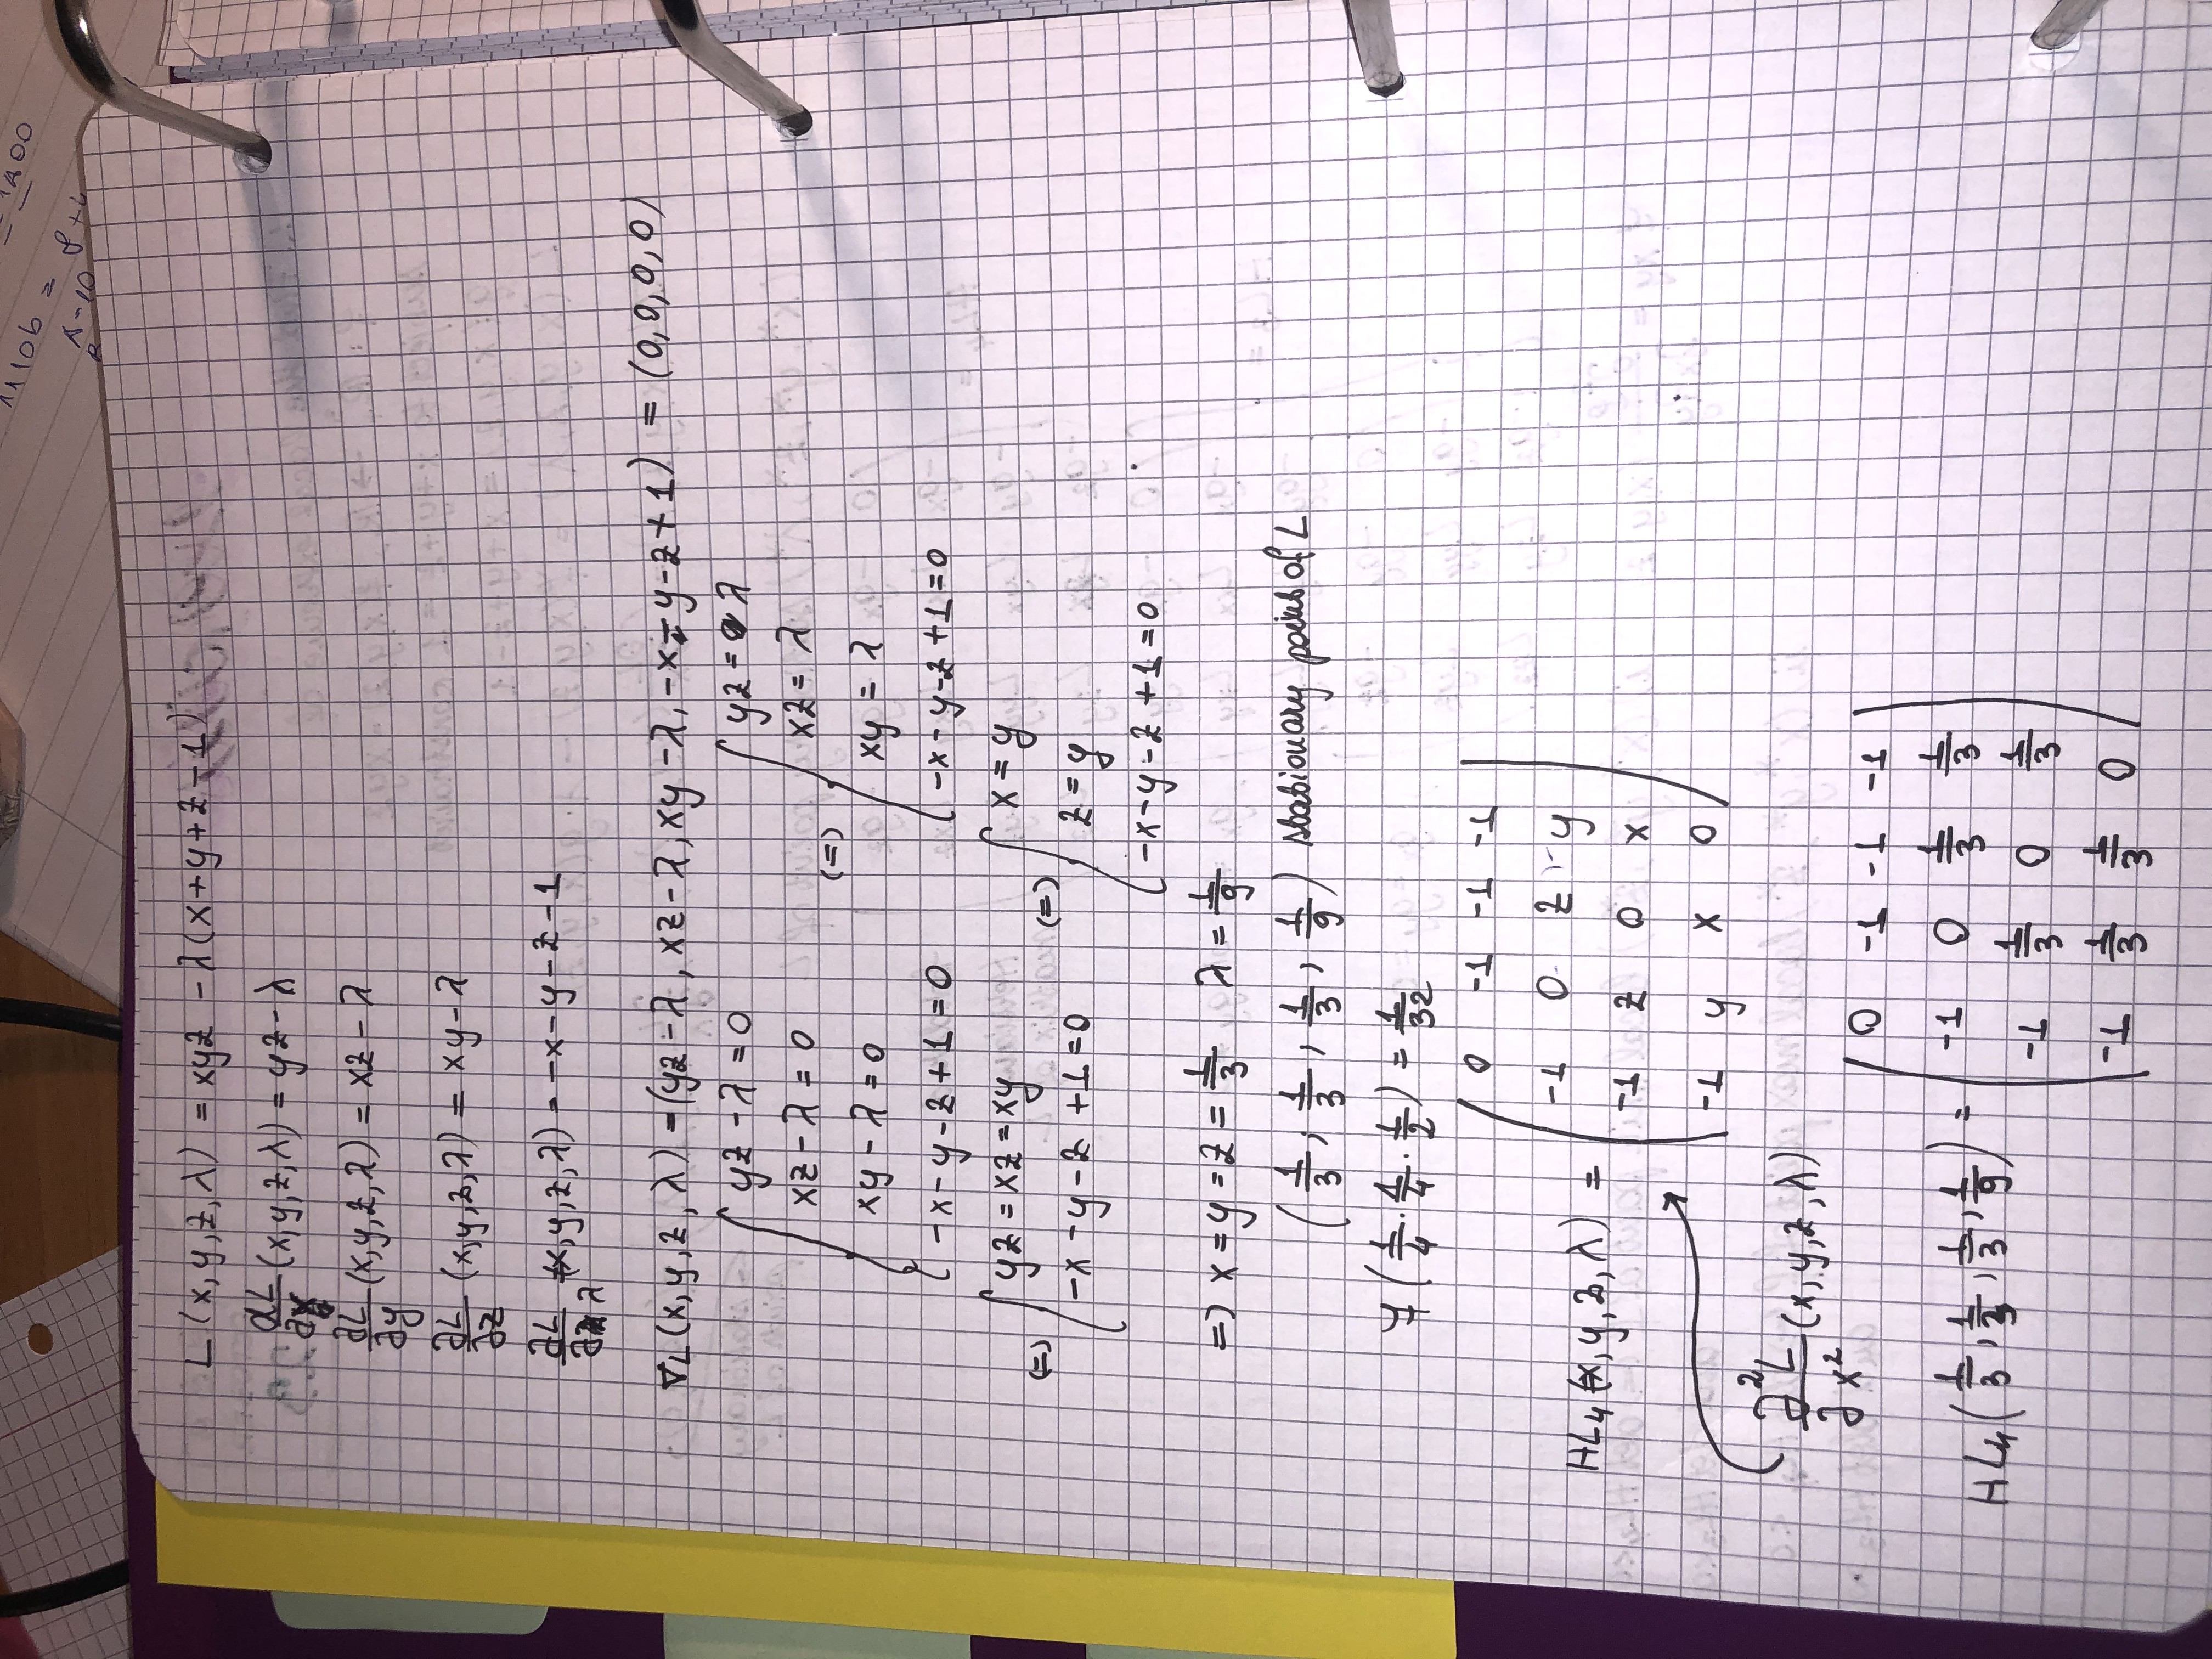 1110b =
= 1A00
A-10
L(x,y,z,λ) = xyz - λ(x+y+z-1)
∂L/∂x (x,y,z,λ) = yz - λ
∂L/∂y (x,y,z,λ) = xz - λ
∂L/∂z (x,y,z,λ) = xy - λ
∂L/∂λ (x,y,z,λ) = -x-y-z-1
∇L(x,y,z,λ) = (yz-λ, xz-λ, xy-λ, -x-y-z+1) = (0,0,0,0)
yz - λ = 0 yz = λ
xz - λ = 0 xz = λ
(=)
xy - λ = 0 xy = λ
-x-y-z+1=0 -x-y-z+1=0
yz = xz = xy x = y
(=) -x-y-z+1=0 (=) z = y
-x-y-z+1=0
=) x = y = z = 1/3 λ = 1/9
(1/3, 1/3, 1/3, 1/9) stationary point of L
f(1/4 · 1/4 · 1/2) = 1/32
0 -1 -1 -1
-1 0 z y
HL4(x,y,z,λ) =
-1 z 0 x
-1 y x 0
∂²L/∂x² (x,y,z,λ)
0 -1 -1 -1
-1 0 1/3 1/3
HL4(1/3, 1/3, 1/3, 1/9) =
-1 1/3 0 1/3
-1 1/3 1/3 0